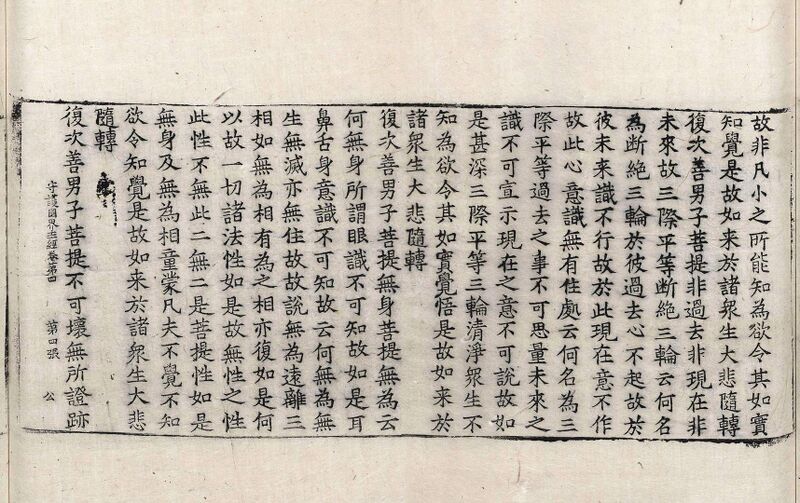 故非凡小之所能知為欲令其如實
知覺是故如来於諸衆生大悲隨轉
復次善男子菩提非過去非現在非
未來故三際平等断絶三輪云何名
為断絶三輪於彼過去心不起故於
彼未来識不行故於此現在意不作
故此心意識無有住處云何名為三
際平等過去之事不可思量未來之
識不可宣示現在之意不可說故如
是甚深三際平等三輪清淨衆生不
知為欲令其如實覺悟是故如来於
諸衆生大悲隨轉
復次善男子菩提無身菩提無為云
何無身所謂眼識不可知故如是耳
鼻舌身意識不可知故云何無為無
生無滅亦無住故故說無為遠離三
相如無為相有為之相亦復如是何
以故一切諸法性如是故無性之性
此性不無此二無二是菩提性如是
無身及無為相童蒙凡夫不覺不知
欲令知覺是故如来於諸衆生大悲
隨轉
復次善男子菩提不可壞無所證跡
守護國界主經卷第四 第四張 公